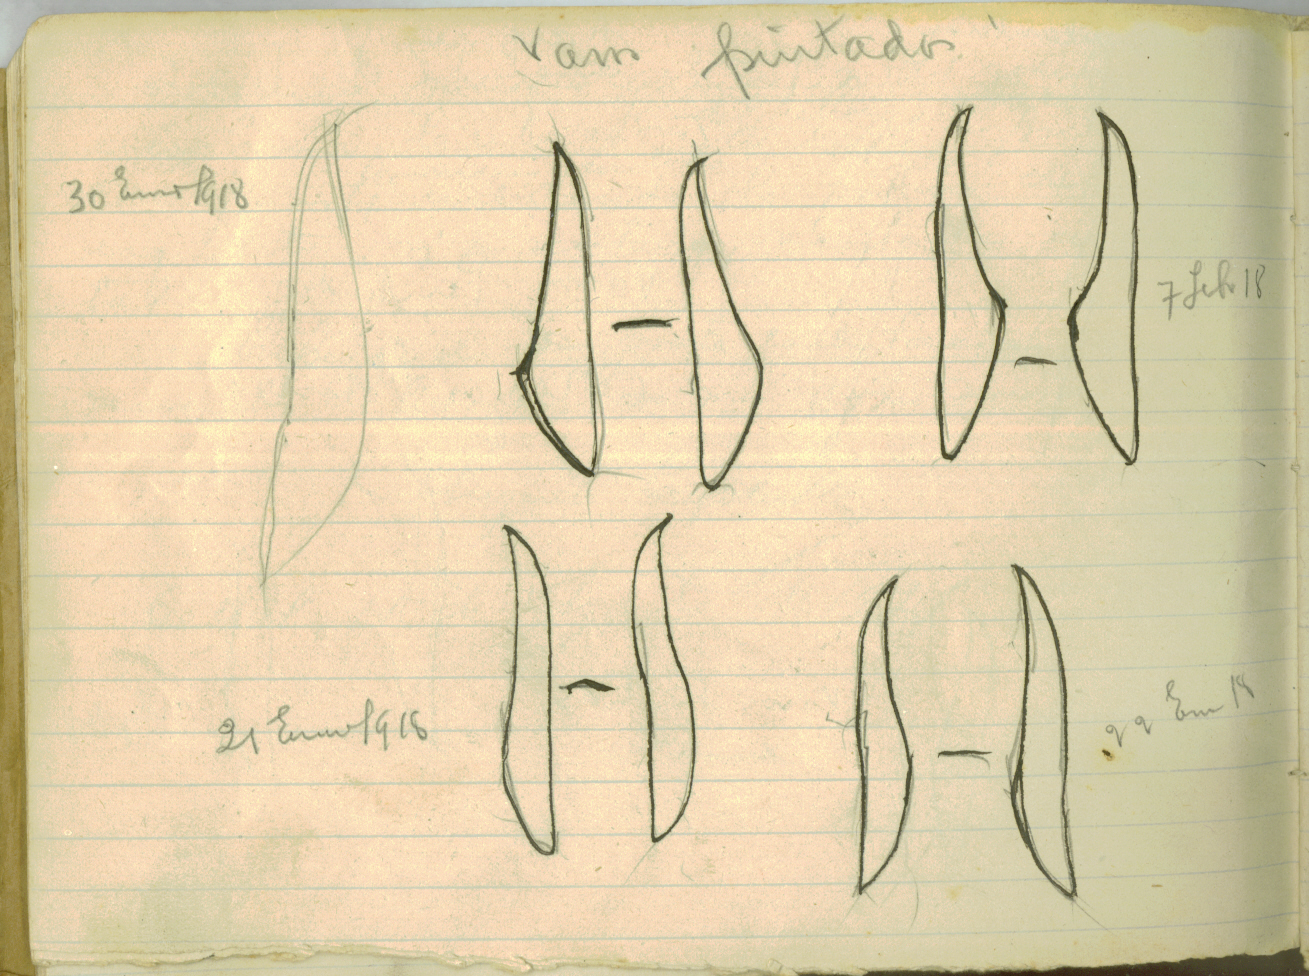 Vasos pintados
30 Enero/918
7 Feb 18
21 Enero/918
22 Ene 18